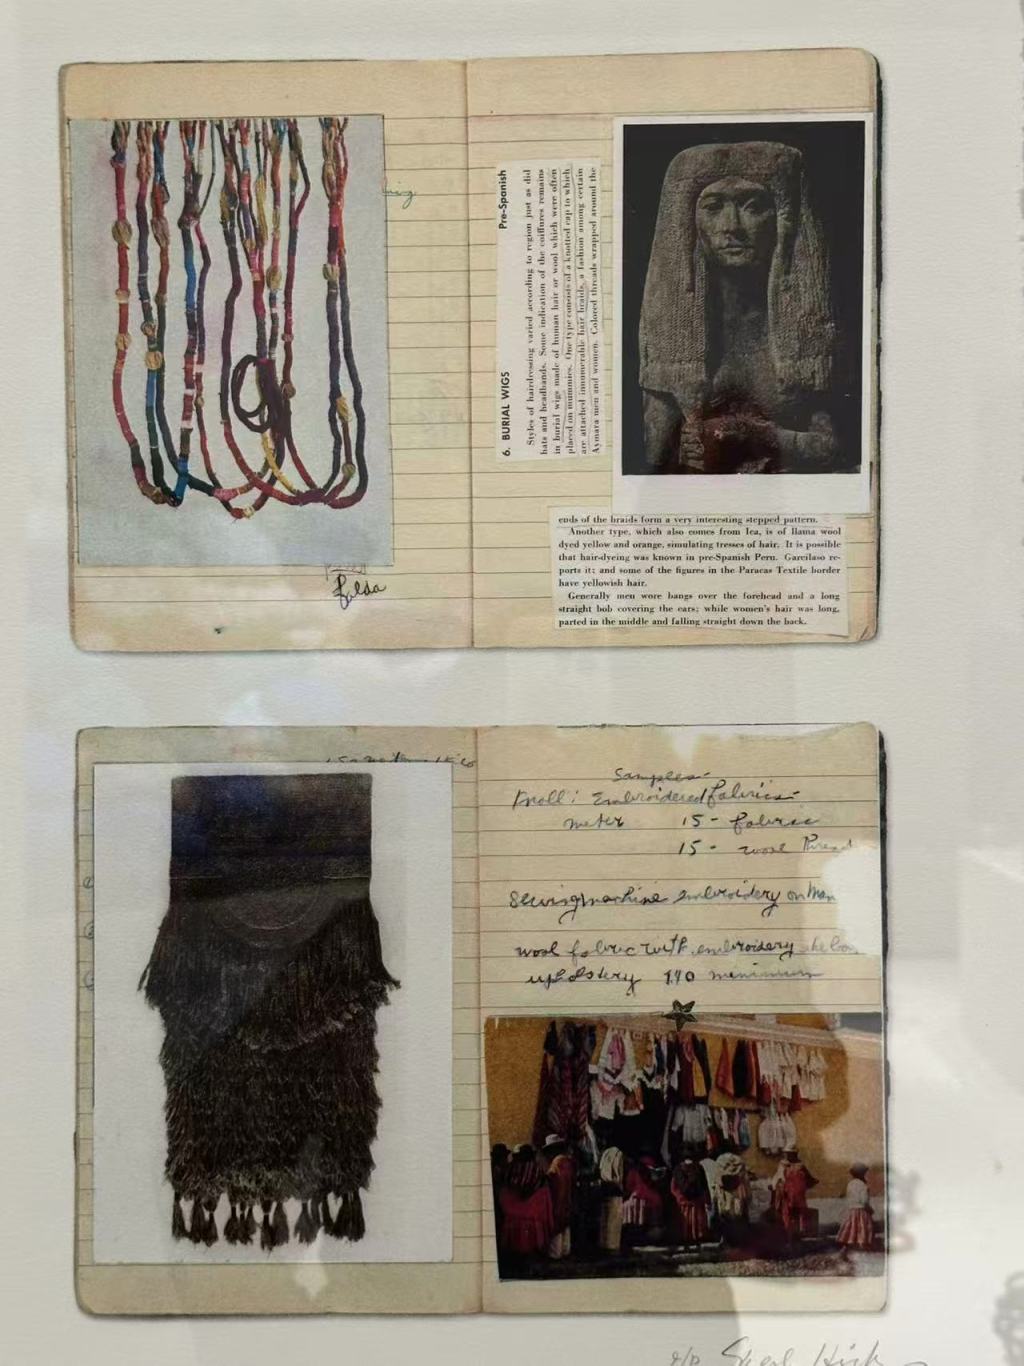 6. BURIAL WIGS Pre-Spanish
Styles of hairdressing varied according to region just as did
hats and headbands. Some indication of the coiffures remains
in burial wigs made of human hair or wool which were often
placed on mummies. One type consists of a knotted cap to which
are attached innumerable hair braids, a fashion among certain
Aymara men and women. Colored threads wrapped around the
ends of the braids form a very interesting stepped pattern.
Another type, which also comes from Ica, is of llama wool
dyed yellow and orange, simulating tresses of hair. It is possible
that hair-dyeing was known in pre-Spanish Peru. Garcilaso re-
ports it; and some of the figures in the Paracas Textile border
have yellowish hair.
Generally men wore bangs over the forehead and a long
straight bob covering the ears; while women's hair was long,
parted in the middle and falling straight down the back.
Samples-
Knoll: Embroidered fabrics-
meter 15- fabric
15- wool Thread
Sewing machine embroidery on
wool fabric with embroidery
upholstery 140 minimum